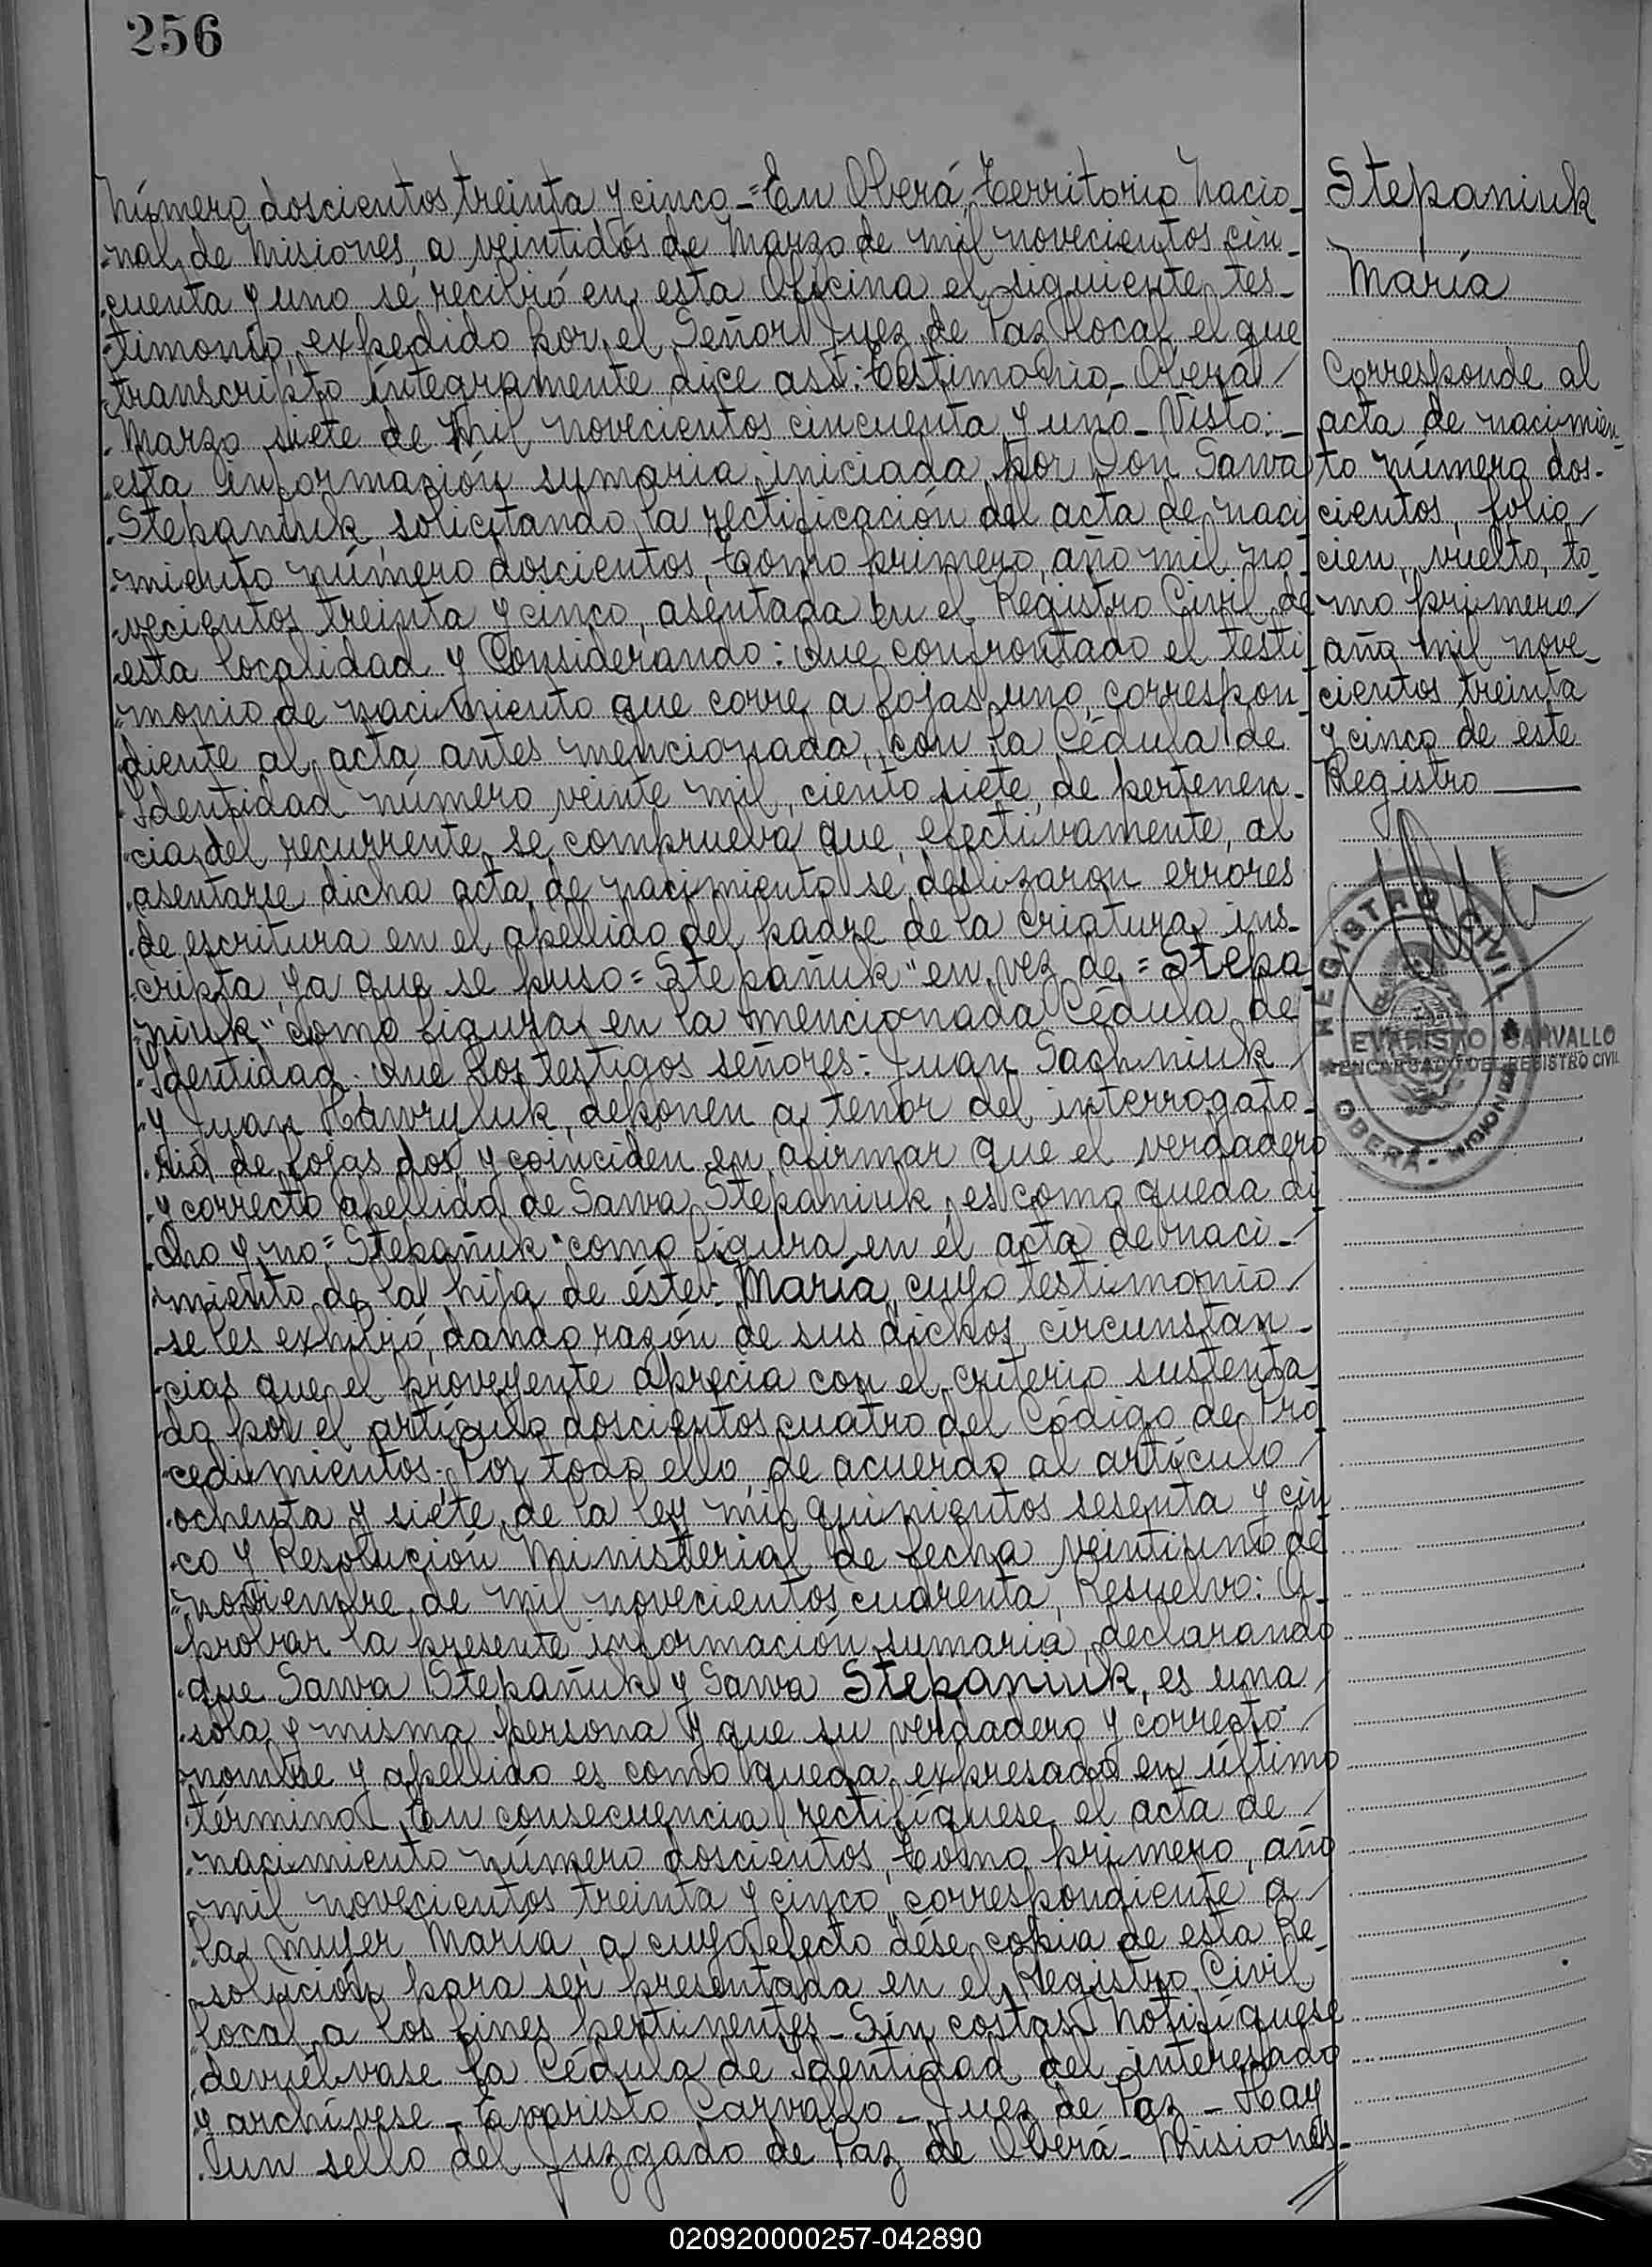 256
Número doscientos treinta y cinco_= En Oberá, Territorio Nacio_
nal de Misiones, a veintidós de Marzo de mil novecientos cin_
cuenta y uno se recibió en esta Oficina el siguiente tes_
timonio, expedido por el Señor Juez de Paz local, el que
transcripto íntegramente dice así: Testimonio_ Oberá
Marzo siete de mil novecientos cincuenta y uno_ Visto:_
esta información sumaria iniciada por Don Sawa
Stepaniuk, solicitando la rectificación del acta de naci
miento número doscientos, tomo primero, año mil no_
vecientos treinta y cinco, asentada en el Registro Civil de
esta localidad y Considerando: Que confrontado el testi
monio de nacimiento que corre a fojas uno, correspon_
diente al acta antes mencionada, con la Cédula de
Identidad número veinte mil, ciento siete, de pertenen_
cia del recurrente, se comprueba que, efectivamente, al
asentarse dicha acta de nacimiento se deslizaron errores
de escritura en el apellido del padre de la criatura ins_
cripta, ya que se puso = Stepañuk" en vez de = Stepa
niuk" como figura en la mencionada Cédula de
Identidad. Que los testigos señores: Juan Sachniuk
y Juan Hawryluk, deponen a tenor del interrogato_
rio de fojas dos, y coinciden en afirmar que el verdadero
y correcto apellido de Sawa Stepaniuk, es como queda di
cho y no = Stepañuk" como figura en el acta de naci_
miento de la hija de éste: María, cuyo testimonio
se les exhibió, dando razón de sus dichos, circunstan_
cias que el proveyente aprecia con el criterio sustenta
do por el artículo doscientos cuatro del Código de Pro_
cedimientos; Por todo ello, de acuerdo al artículo
ochenta y siete de la ley mil quinientos sesenta y cin
co y Resolución Ministerial de fecha veintiuno de
noviembre de mil novecientos cuarenta, Resuelvo: A_
probar la presente información sumaria, declarando
que Sawa Stepañuk y Sawa Stepaniuk, es una
sola y misma persona y que su verdadero y correcto
nombre y apellido es como queda expresado en último
término_ En consecuencia rectifíquese el acta de
nacimiento número doscientos, tomo primero, año
mil novecientos treinta y cinco, correspondiente a
la mujer María, a cuyo efecto dése copia de esta Re_
solución para ser presentada en el Registro Civil
local a los fines pertinentes_ Sin costas. Notifíquese
devuélvase la Cédula de Identidad del interesado
y archívese_ Evaristo Carvallo_ Juez de Paz_ Hay
un sello del Juzgado de Paz de Oberá_ Misiones_
Stepaniuk
María
Corresponde al
acta de nacimien_
to número dos_
cientos, folio
cien, vuelto, to_
mo primero
año mil nove_
cientos treinta
y cinco de este
Registro
REGISTRO CIVIL
EVARISTO CARVALLO
ENCARGADO DEL REGISTRO CIVIL
OBERÁ - MISIONES
020920000257-042890